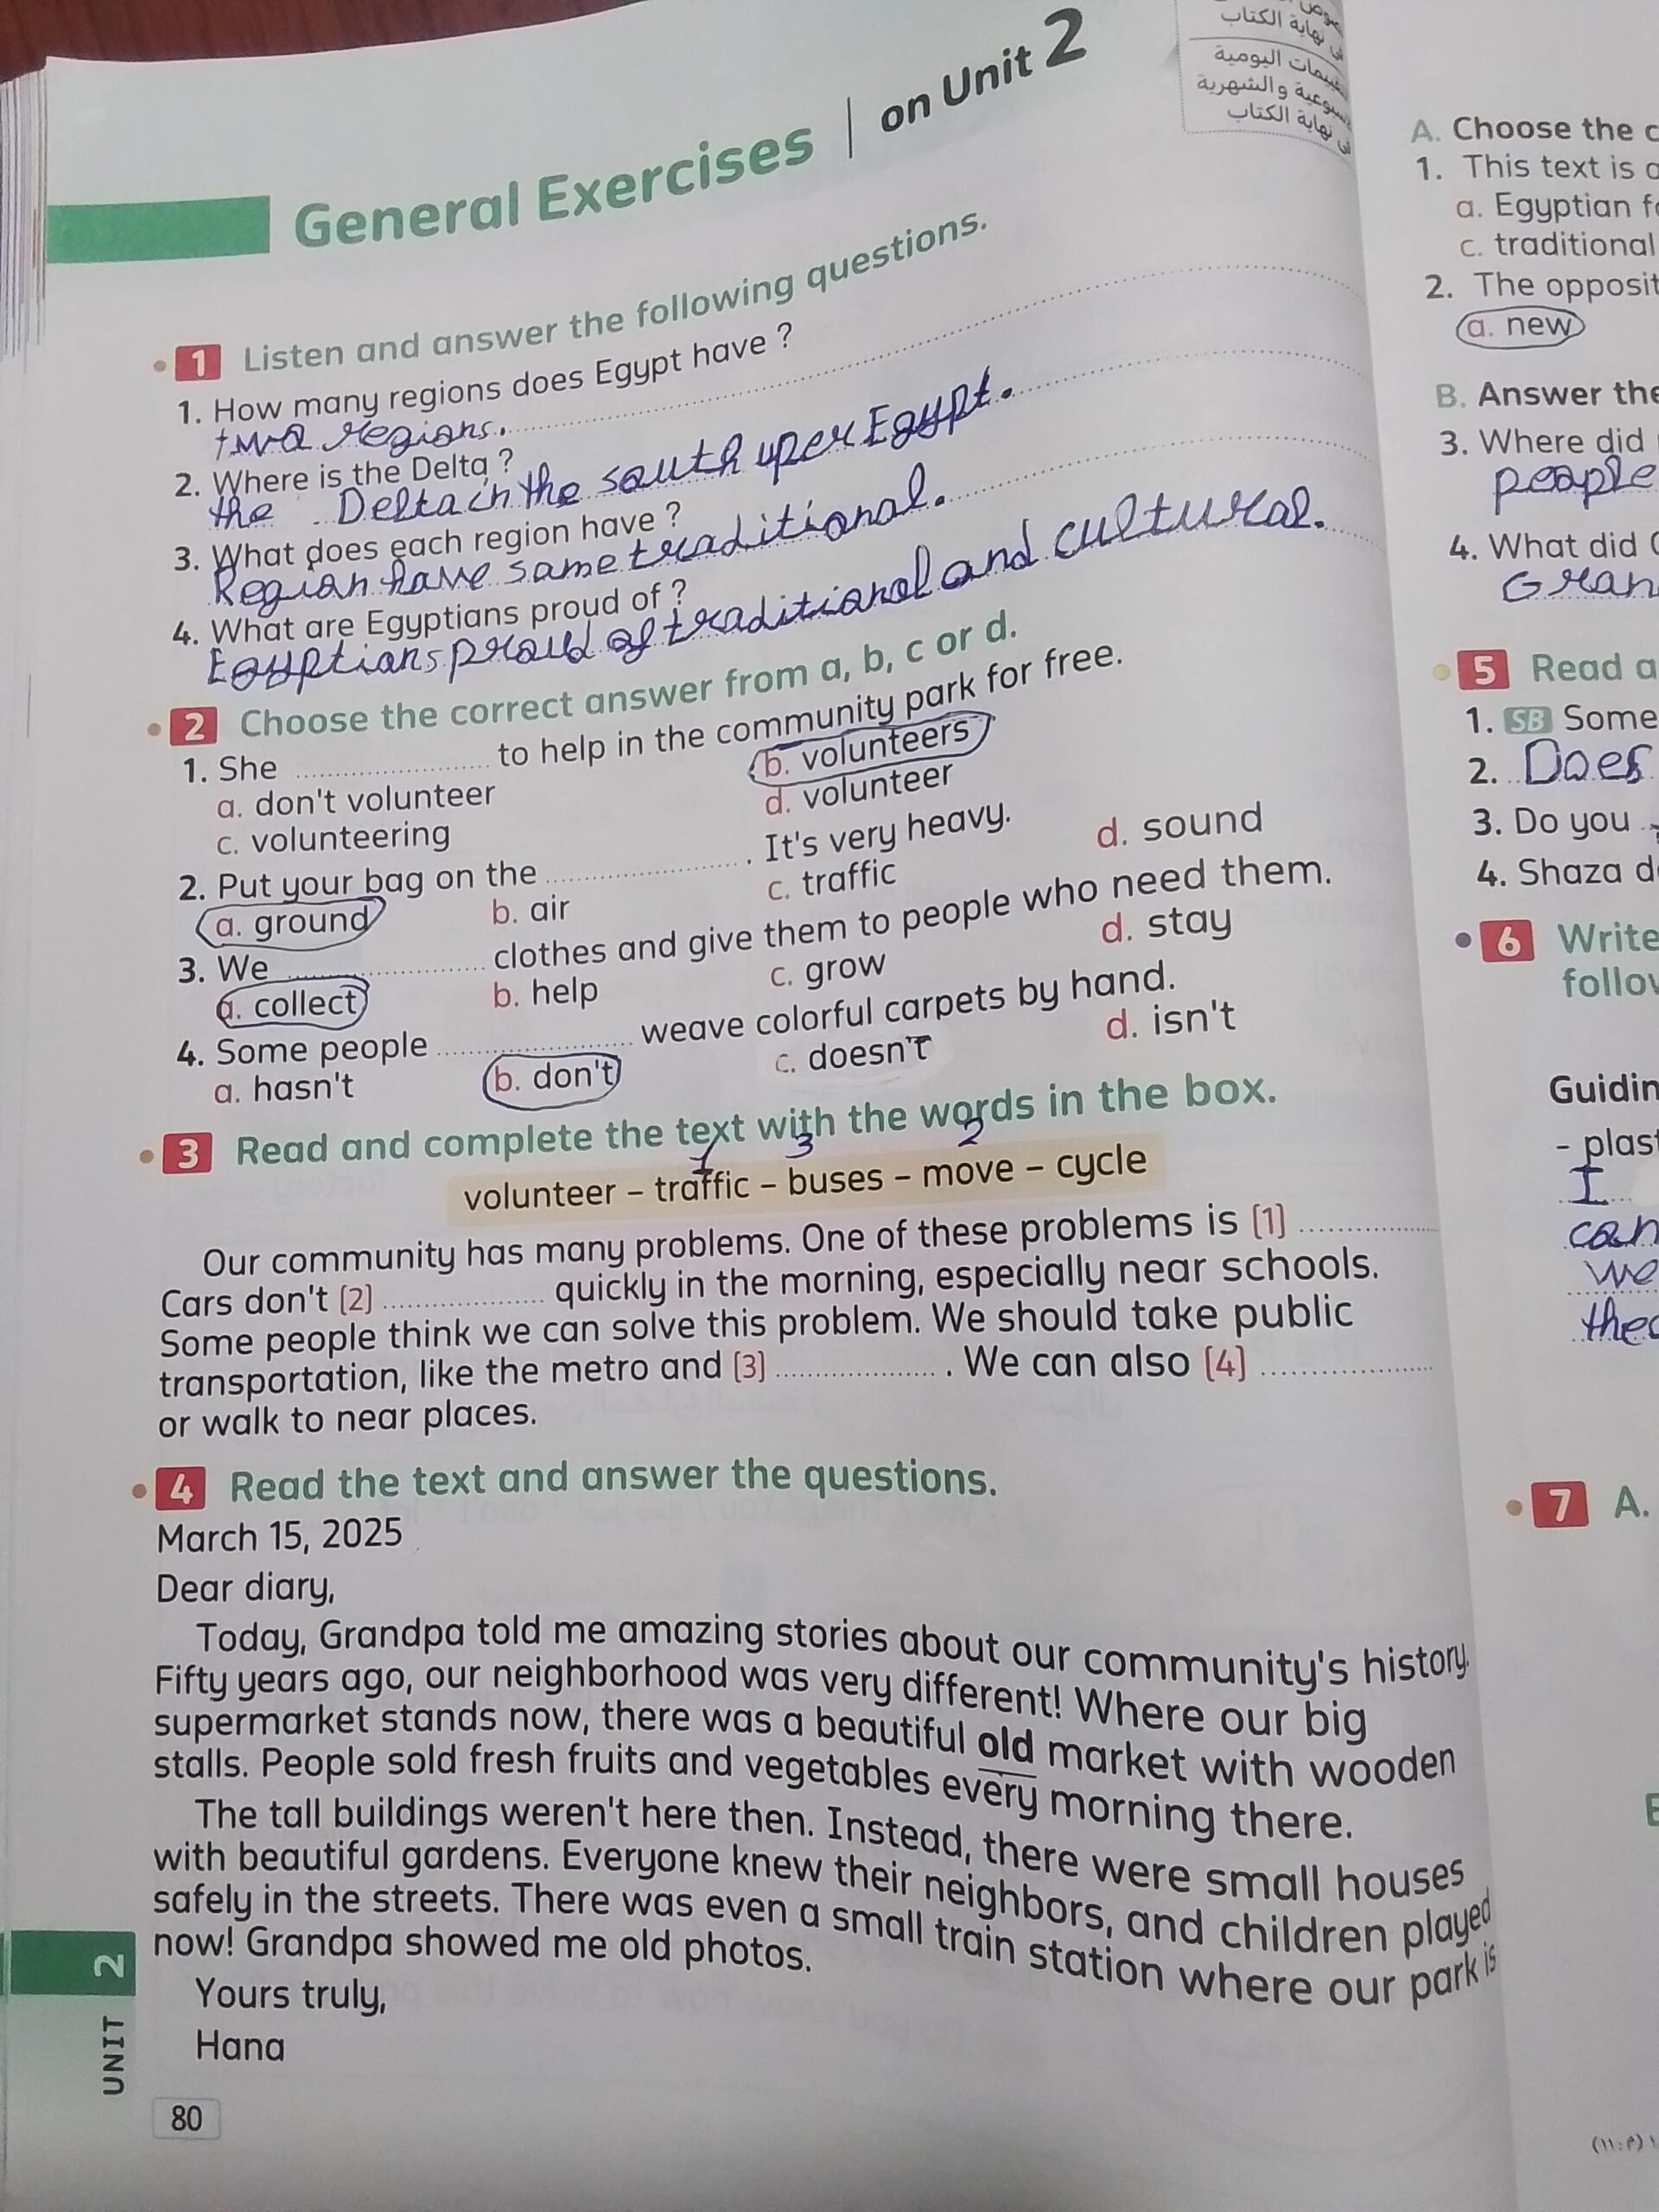 General Exercises | on Unit 2
الكتاب
فى نهاية الكتاب
اليومية
والشهرية
فى نهاية الكتاب
1 Listen and answer the following questions.
1. How many regions does Egypt have ?
two regions.
2. Where is the Delta ?
the Delta in the south uper Egypt.
3. What does each region have ?
Region have same traditional.
4. What are Egyptians proud of ?
Egyptians proud of traditional and cultural.
2 Choose the correct answer from a, b, c or d.
1. She ........ to help in the community park for free.
a. don't volunteer b. volunteers
c. volunteering d. volunteer
2. Put your bag on the ........ . It's very heavy.
a. ground b. air c. traffic d. sound
3. We ........ clothes and give them to people who need them.
a. collect b. help c. grow d. stay
4. Some people ........ weave colorful carpets by hand.
a. hasn't b. don't c. doesn't d. isn't
3 Read and complete the text with the words in the box.
1 3 2
volunteer – traffic – buses – move – cycle
Our community has many problems. One of these problems is [1] ........
Cars don't [2] ........ quickly in the morning, especially near schools.
Some people think we can solve this problem. We should take public
transportation, like the metro and [3] ........ . We can also [4] ........
or walk to near places.
4 Read the text and answer the questions.
March 15, 2025
Dear diary,
Today, Grandpa told me amazing stories about our community's history.
Fifty years ago, our neighborhood was very different! Where our big
supermarket stands now, there was a beautiful old market with wooden
stalls. People sold fresh fruits and vegetables every morning there.
The tall buildings weren't here then. Instead, there were small houses
with beautiful gardens. Everyone knew their neighbors, and children played
safely in the streets. There was even a small train station where our park is
now! Grandpa showed me old photos.
Yours truly,
Hana
UNIT 2
80
A. Choose the
1. This text is
a. Egyptian
c. traditional
2. The
a. new
B. Answer the
3. Where did
people
4. What did
5 Read
1. SB Some
2. Does
3. Do you
4. Shaza
6 Write
I
can
we
7 A.